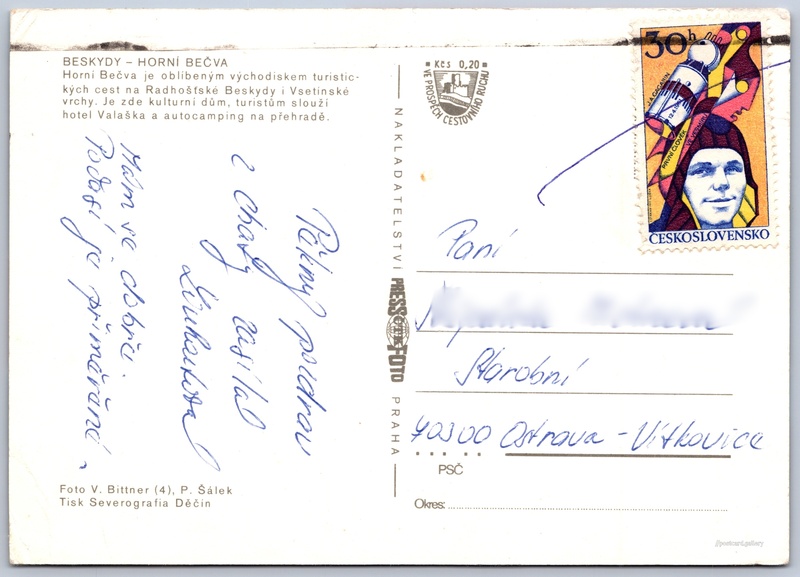 BESKYDY – HORNÍ BEČVA
Horní Bečva je oblíbeným východiskem turistic-
kých cest na Radhošťské Beskydy i Vsetínské
vrchy. Je zde kulturní dům, turistům slouží
hotel Valaška a autocamping na přehradě.
Kčs 0,20
VE PROSPĚCH CESTOVNÍHO RUCHU
30h
J. A. GAGARIN
PRVNÍ ČLOVĚK
VE VESMÍRU
ČESKOSLOVENSKO
Pěkný pozdrav
z chaty zasílá
Mám se dobře.
Počasí je přiměřené.
NAKLADATELSTVÍ PRESSFOTO PRAHA
ČTK
Paní
Starobní
70300 Ostrava – Vítkovice
PSČ
Okres:
Foto V. Bittner (4), P. Šálek
Tisk Severografia Děčín